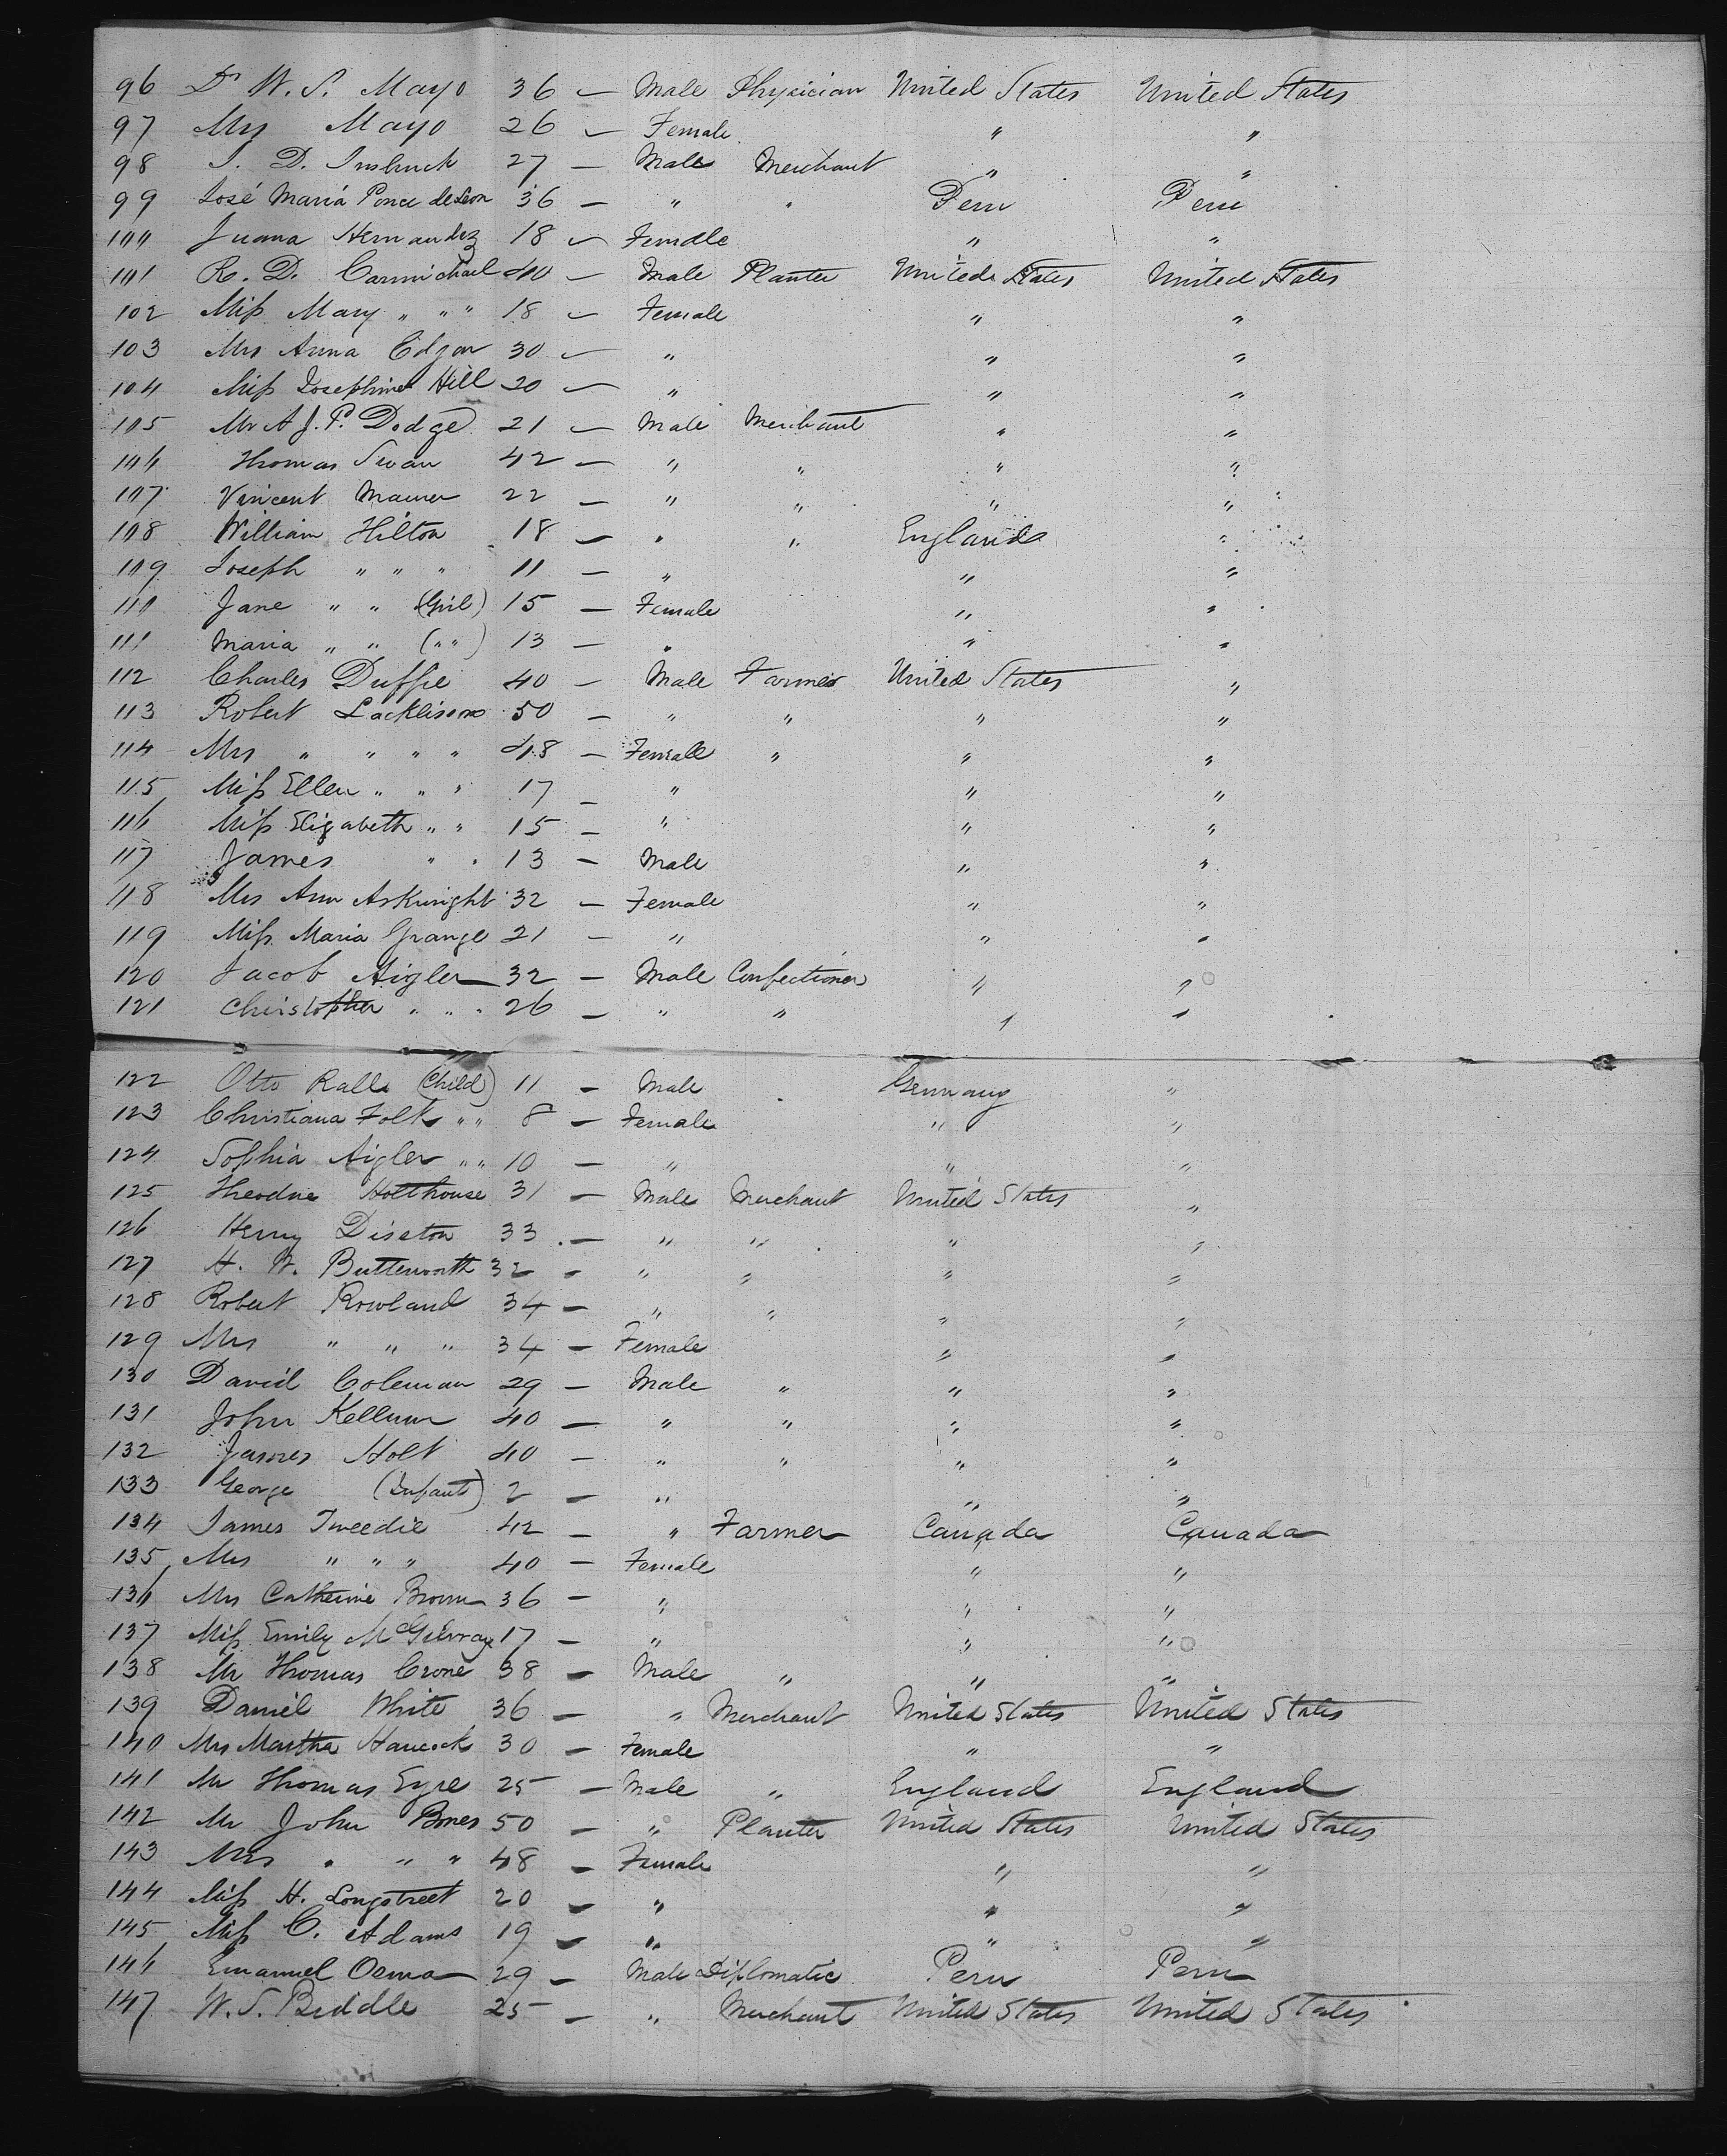 96 Dr W. S. Mayo 36 — Male Physician United States United States
97 Mrs Mayo 26 — Female " "
98 D. 27 — Male Merchant " "
99 José Mariá Ponce de Leon 36 — " " Peru Peru
100 Juana Hernandez 18 — Female " "
101 R. D. Carmichael 40 — Male Planter United States United States
102 Miss Mary " " " 18 — Female " "
103 Mrs Anna Edgar 30 — " " "
104 Miss Josephine Hill 20 — " " "
105 Mr A. J. P. Dodge 21 — Male Merchant " "
106 Thomas Swan 42 — " " " "
107 Vincent 22 — " " " "
108 William Hilton 18 — " " England "
109 Joseph " " " 11 — " " "
110 Jane " " (Girl) 15 — Female " "
111 Maria " " (" ") 13 — " " "
112 Charles Duffie 40 — Male Farmer United States "
113 Robert Lacklison 50 — " " " "
114 Mrs " " " " 48 — Female " " "
115 Miss Ellen " " " 17 — " " "
116 Miss Elizabeth " " 15 — " " "
117 James " " 13 — Male " "
118 Mrs Ann Arkwright 32 — Female " "
119 Miss Maria Grange 21 — " " "
120 Jacob Aigler 32 — Male Confectioner " "
121 Christopher " " " 26 — " " " "
122 Otto Ralle (Child) 11 — Male Germany "
123 Christiana Folk " " 8 — Female " "
124 Sophia Aigler " " 10 — " " "
125 Theodore Holthouse 31 — Male Merchant United States "
126 Henry Disston 33 — " " " "
127 H. W. Butterworth 32 — " " " "
128 Robert Rowland 34 — " " " "
129 Mrs " " " 34 — Female " "
130 David Coleman 29 — Male " " "
131 John Kellum 40 — " " " "
132 James Holt 40 — " " " "
133 George (Infant) 2 — " " "
134 James Tweedie 42 — " Farmer Canada Canada
135 Mrs " " " 40 — Female " "
136 Mrs Catherine Brown 36 — " " "
137 Miss Emily McGilvray 17 — " " "
138 Mr Thomas Crone 38 — Male " " "
139 Daniel White 36 — " Merchant United States United States
140 Mrs Martha Hancock 30 — Female " "
141 Mr Thomas Eyre 25 — Male " England England
142 Mr John Bones 50 — " Planter United States United States
143 Mrs " " " 48 — Female " "
144 Miss H. Longstreet 20 — " " "
145 Miss C. Adams 19 — " " "
146 Emanuel Osma 29 — Male Diplomatic Peru Peru
147 W. S. Biddle 25 — " Merchant United States United States